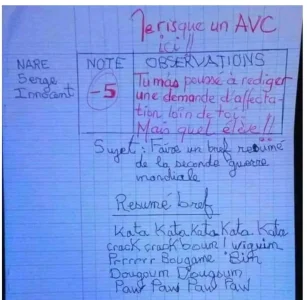 Je risque un AVC
ici !!
NARE
Serge
Innocent
NOTE
-5
OBSERVATIONS
Tu m'as poussé à rediger
une demande d'affecta-
tion loin de toi.
Mais quel élève !!
Sujet : Faire un bref resumé
de la seconde guerre
mondiale
Resumé bref
Kata Kata Kata Kata Kata
crack crack boum !
Prrrrrr Bougame
Dougoum Dougoum
Paw Paw Paw Paw